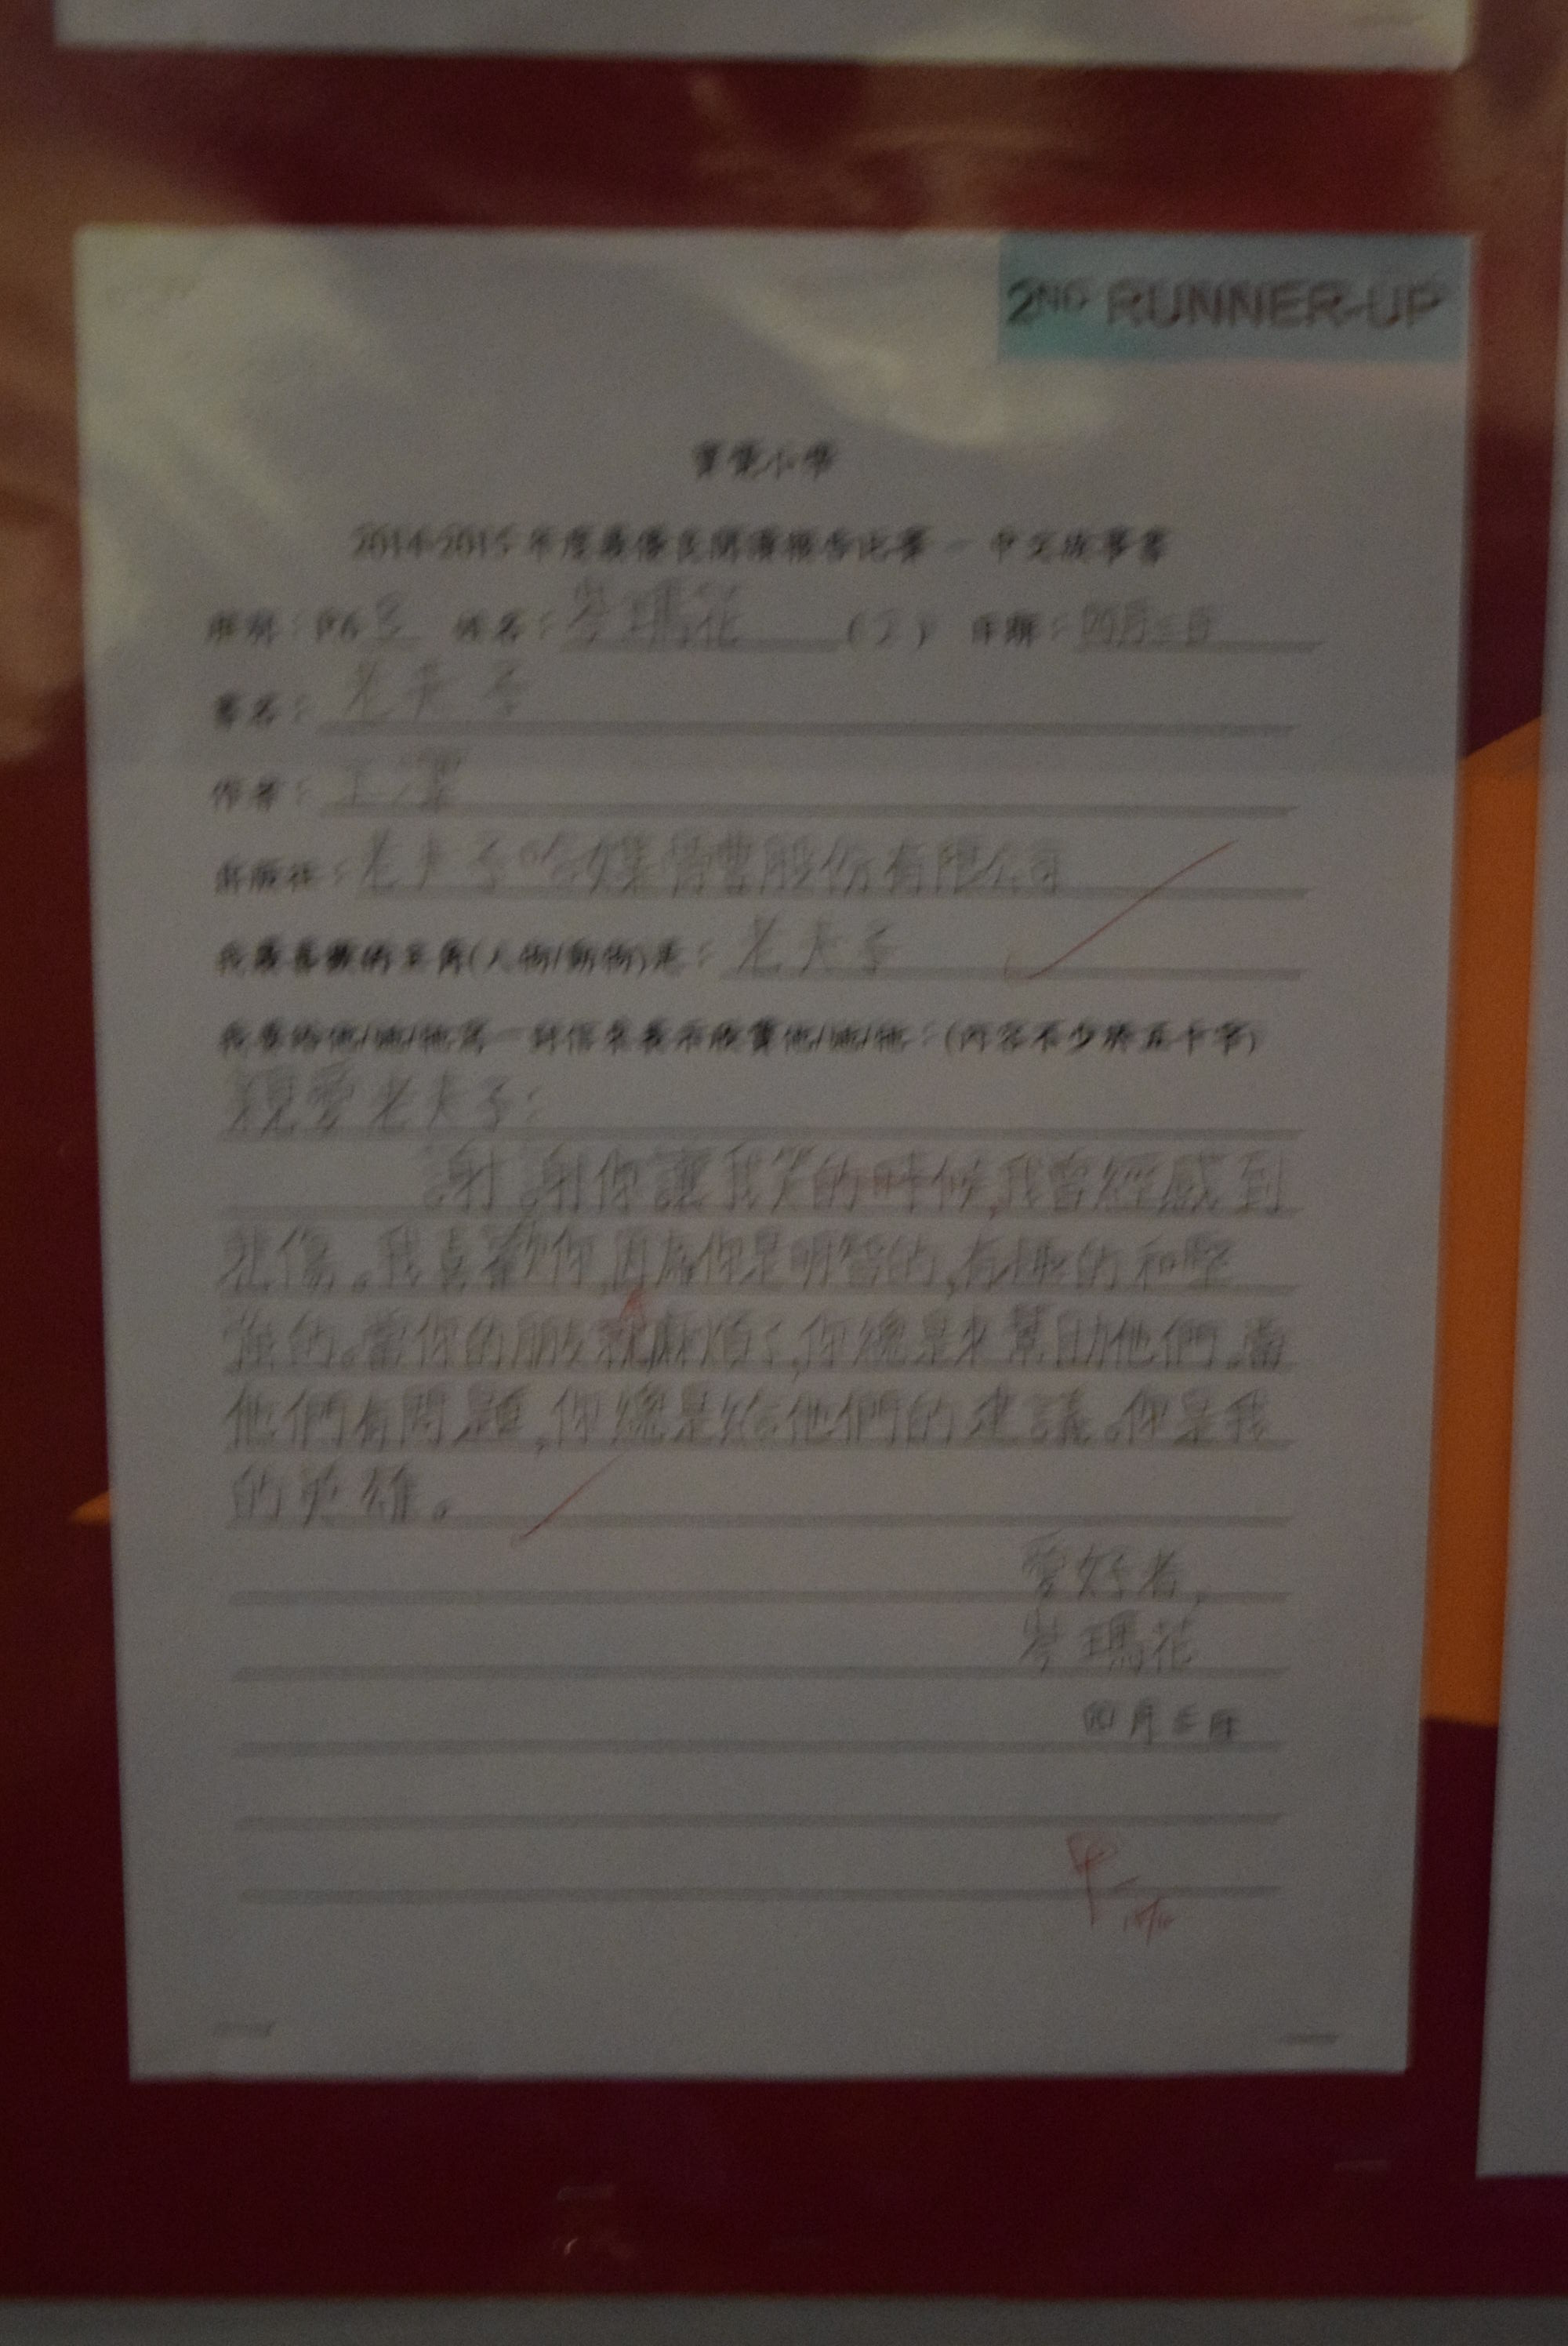 2ND RUNNER-UP
寶覺小學
2014-2015 年度最優良閱讀報告比賽 - 中文故事書
班別：P6 姓名：岑瑪花 (2) 日期：四月三日
書名：老夫子
作者：王澤
出版社：老夫子哈媒體股份有限公司
我最喜歡的主角(人物/動物)是：老夫子
我要給他/她/牠寫一封信來表示欣賞他/她/牠：(內容不少於五十字)
親愛老夫子：
謝謝你讓我笑的時候,我曾經感到
悲傷。我喜歡你,因為你是明智的,有趣的和堅
強的。當你的朋友麻煩了,你總是來幫助他們。當
他們有問題,你總是給他們的建議。你是我
的英雄。
愛好者,
岑瑪花
四月三日